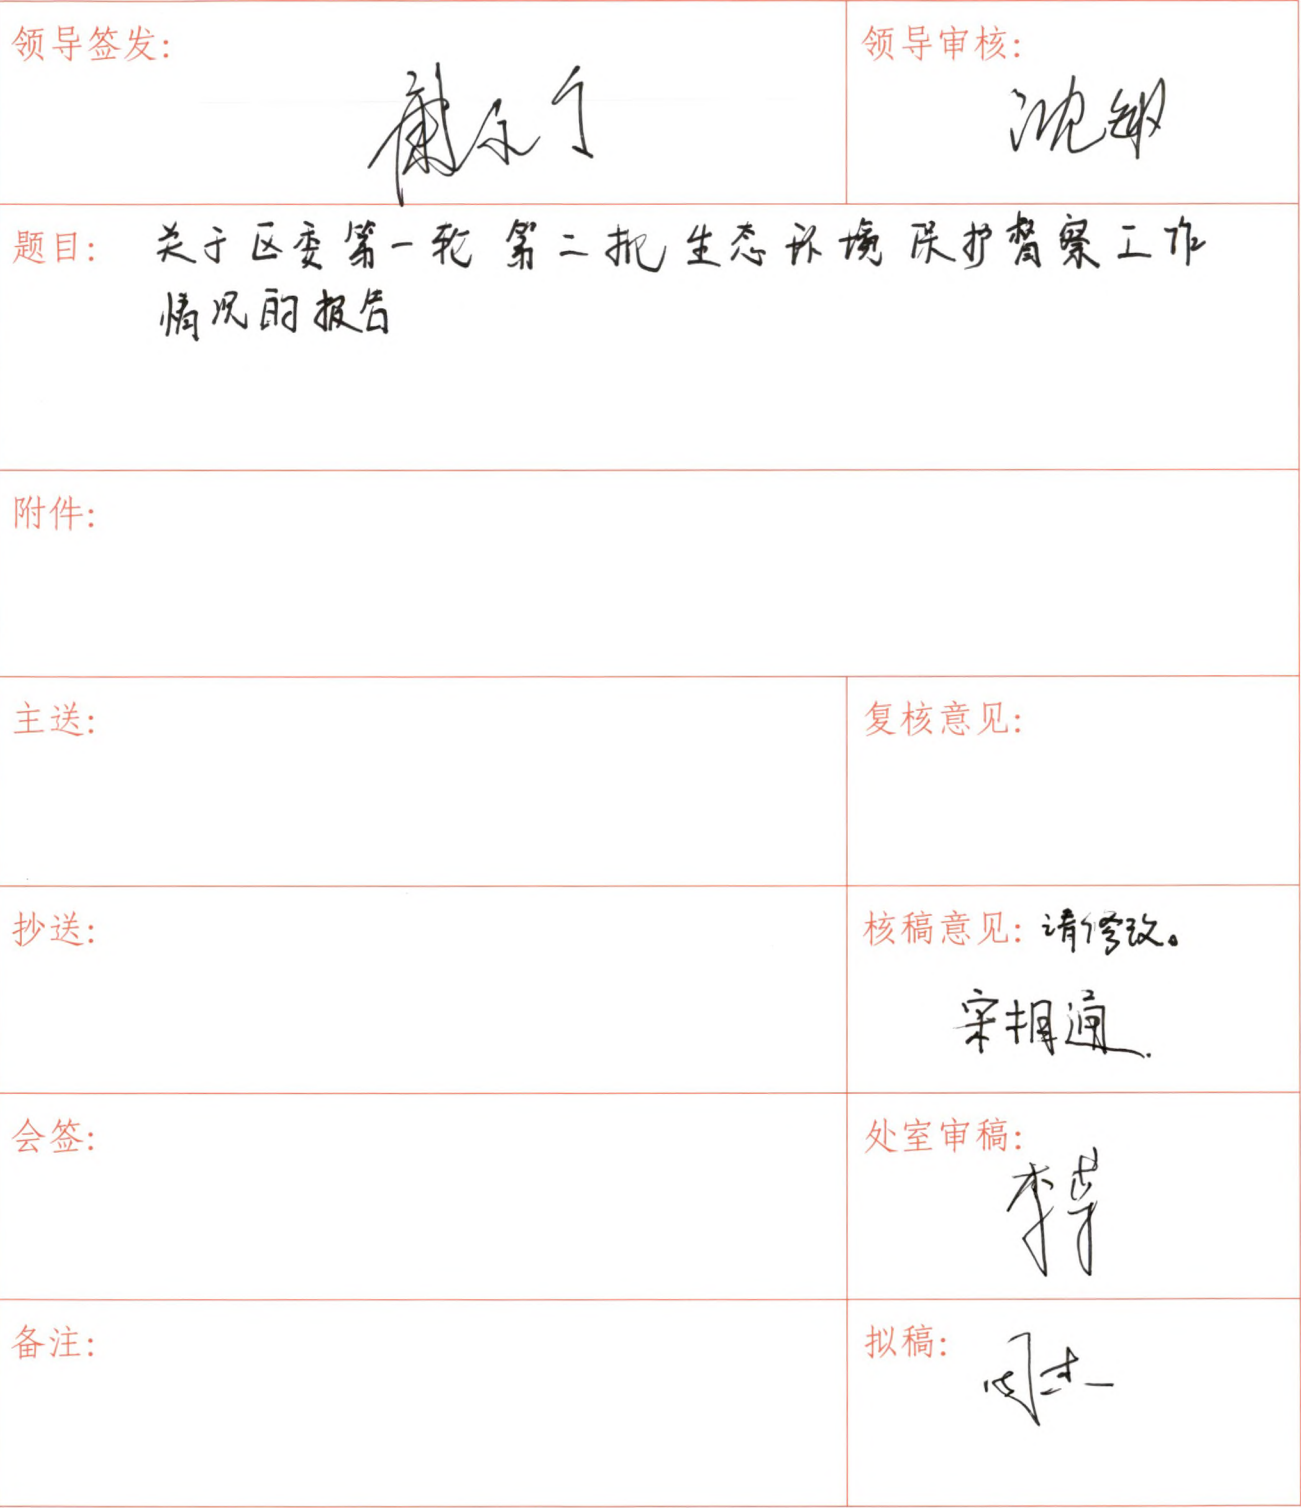 领导签发:
领导审核:
沈敏
题目: 关于区委第一轮第二批生态环境保护督察工作
情况的报告
附件:
主送:
复核意见:
抄送:
核稿意见: 请修改。
宋相通
会签:
处室审稿:
备注:
拟稿: